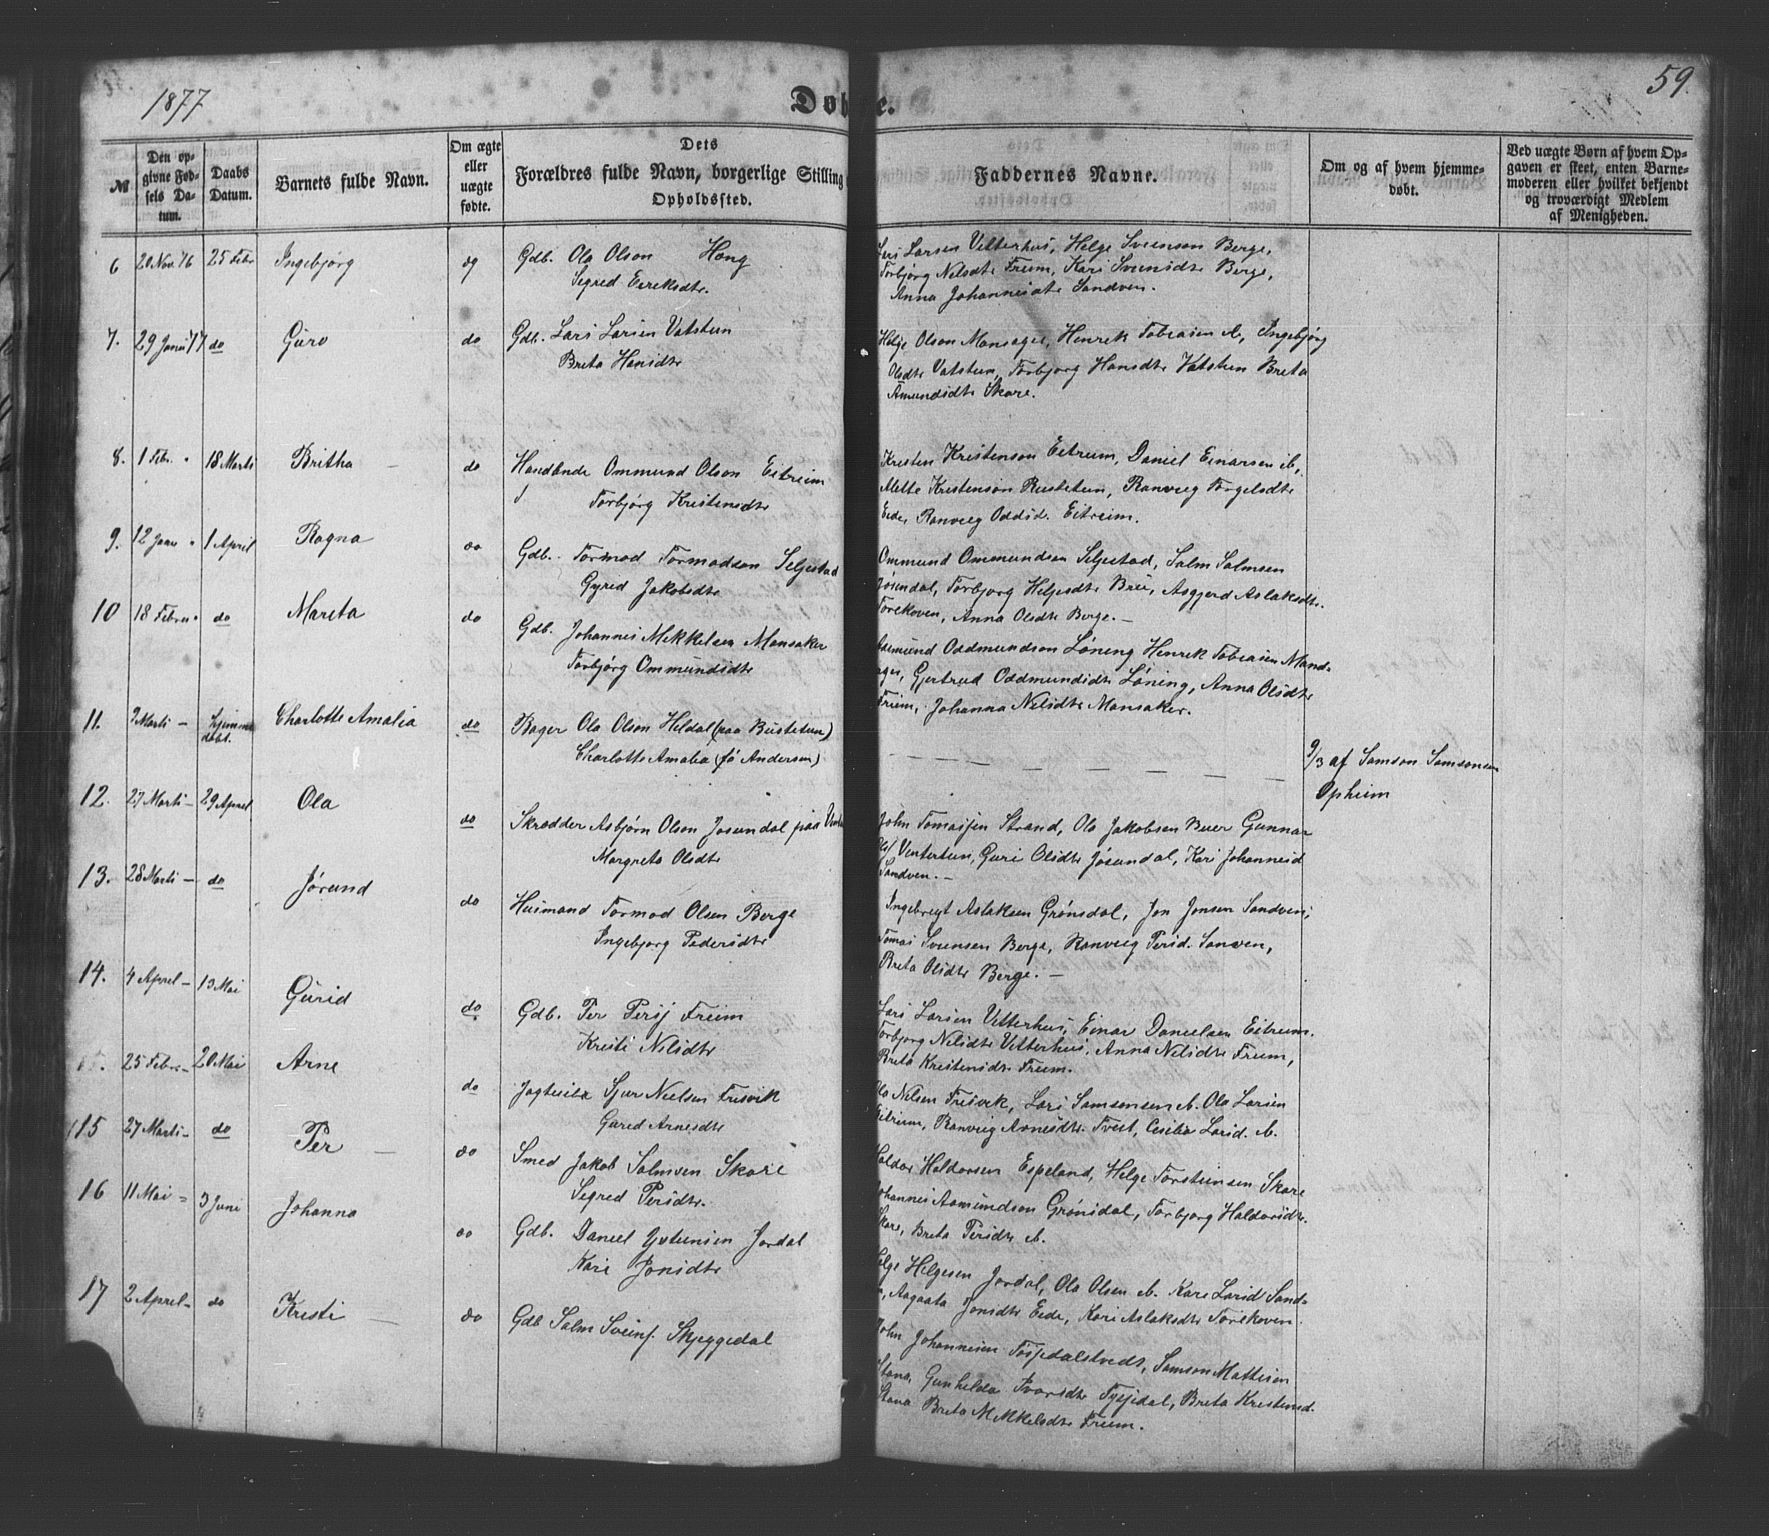 1877
Døbte.
59.
№
Den opgivne Fødsels Datum.
Daabs Datum.
Barnets fulde Navn.
Om ægte eller uægte fødte.
Dets
Forældres fulde Navn, borgerlige Stilling
Opholdssted.
Faddernes Navne.
Om og af hvem hjemmedøbt.
Ved uægte Børn af hvem Opgaven er skeet, enten Barnemoderen eller hvilket bekjendt og troværdigt Medlem af Menigheden.
6 20 Nov 76 25 Febr Ingebjørg Gdb. Ola Olson
Segred Eireksdtr.
Larsen Vetterhus, Helge Svenson Berge,
Torbjørg Nelsdtr Freim, Kari Svensdtr Berge,
Anna Johannesdtr Sandven.
7. 29 Janu 77 do Guro do Gdb. Lars Larsen Vatstun
Breta Hansdtr
Helge Olson Mansager, Henrek Tobiasen ib, Ingebjørg
Olsdtr Vatstun, Torbjørg Hansdtr Vatstun Breta
Amundsdtr Skare.
8. 1 Febr. " 18 Marti Britha do Handlende Ommund Olson Eitreim
Torbjørg Kristensdtr
Kristen Kristenson Eitreim, Daniel Einarsen ib,
Mette Kristenson Rustetun, Ranveig Torgelsdtr
Eide, Ranveig Oddsd. Eitreim.
9. 12 Janu " 1 April Ragna do Gdb. Tormod Tormodson Seljestad
Gyred Jakobsdtr
Ommund Ommundsen Seljestad, Salm Salmsen
Jøsendal, Torbjørg Helgesdtr Bru, Asgjerd Aslaksdtr.
Torekoven, Anna Olsdtr Berge.—
10 18 Febru " do Mareta do Gdb. Johannes Mekkelsen Mansaker
Torbjørg Ommundsdtr
Oddmundson Løning Henrek Tobiasen Mands-
ager, Gjertrud Oddmundsdtr Løning, Anna Olsdtr
Freim, Johanna Nelsdtr Mansaker.
11. 9 Marti — hjemme
døbt. Charlotte Amalia do Bager Ola Olson Heldal (paa Bustetun)
Charlotte Amalia (fø Andersen)
9/3 af Samson Samsonsen
Opheim
12. 27 Marti — 29 April Ola do Skrædder Asbjørn Olson Jøsendal paa
Margreta Olsdtr
John Tomassen Strand, Ola Jakobsen Buer Gunnar
Ventertun, Guri Olsdtr Jøsendal, Kari Johannesd
Sandven.—
13. 28 Marti — do Jørund do Husmand Tormod Olsen Berge
Ingebjørg Pedersdtr
Ingebregt Aslaksen Grønsdal, Jon Jonsen Sandven,
Tomas Svensen Berge, Ranveig Persd. Sanven,
Breta Olsdtr Berge.—
14. 4 April — 13 Mai Gurid do Gdb. Per Persj Freim
Kristi Nelsdtr
Lars Larsen Vetterhus, Einar Danielsen Eitreim.
Torbjørg Nelsdtr Vetterhus, Anna Nelsdtr Freim,
Breta Kristensdtr Freim.
15. 25 Febr. — 20 Mai Arne do Sjur Nielsen Fresvik
Gured Arnesdtr
Ola Nilsen Fresvik, Lars Samsonsen ib. Ola Larsen
Eitreim, Ranveig Arnesdtr. Tveit, Cecilia Larsd. ib.
15 27 Marti — do Per — do Smed Jakob Salmsen Skare
Segred Persdtr.
Haldor Haldorsen Espeland, Helge Torsteinsen Skare
Johannes Aamundson Grønsdal, Torbjørg Haldorsdtr.
Skare, Breta Persdtr ib.
16 11 Mai — 3 Juni Johanna do Gdb. Daniel Jordal
Kari Jonsdtr
Helge Helgesen Jordal, Ola Olsen ib. Kari Larsd Sand-
Aagaata Jonsdtr Eide, Kari Aslaksdtr Torekoven.
17 2 April — do Kristi — do Gdb Salm Sveins. Skjeggedal
John Johannesen Tyssedalstvedt, Samson Mattisen
Stana, Gunhilda Ivarsdtr Tyssedal, Breta Kristensd.
Stana Breta Mekkelsdtr Freim.